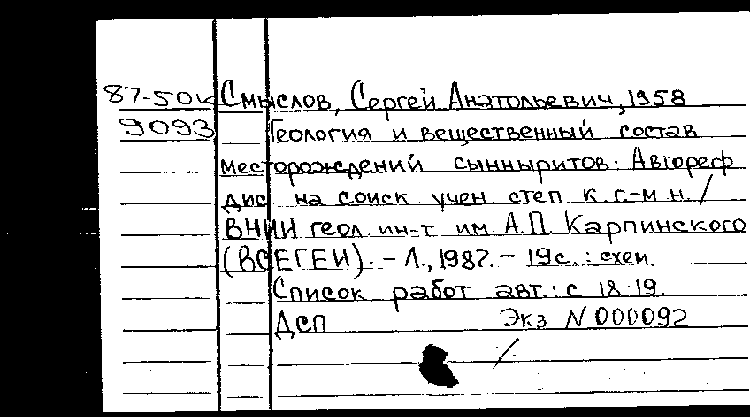 87-50к Смыслов, Сергей Анатольевич, 1958
9093 Геология и вещественный состав
месторождений сынныритов: Автореф
дис на соиск учен степ к. г.-м н. /
ВНИИ геол. ин-т им А.П. Карпинского
(ВСЕГЕИ). - Л., 1987. - 19с. : схем.
Список работ авт.: с 18-19.
ДСП Экз N 000092